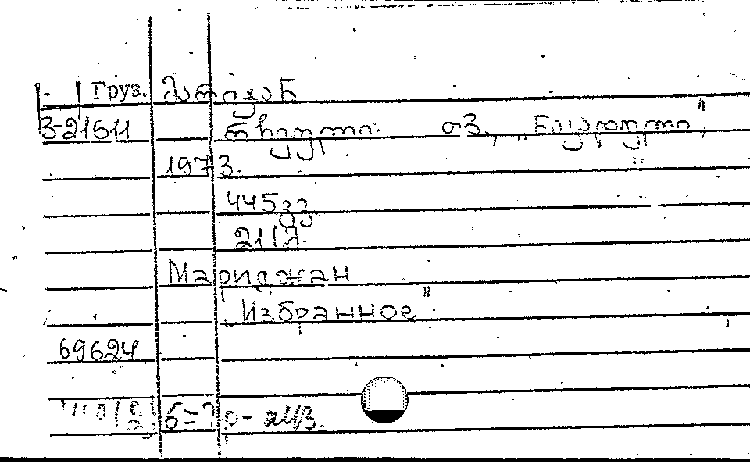 Груз. მარიჯან
3-21611 რჩეული. თბ., „ნაკადული",
1973.
445 გვ
21 (Л.
Мариджан
Избранное"
69624